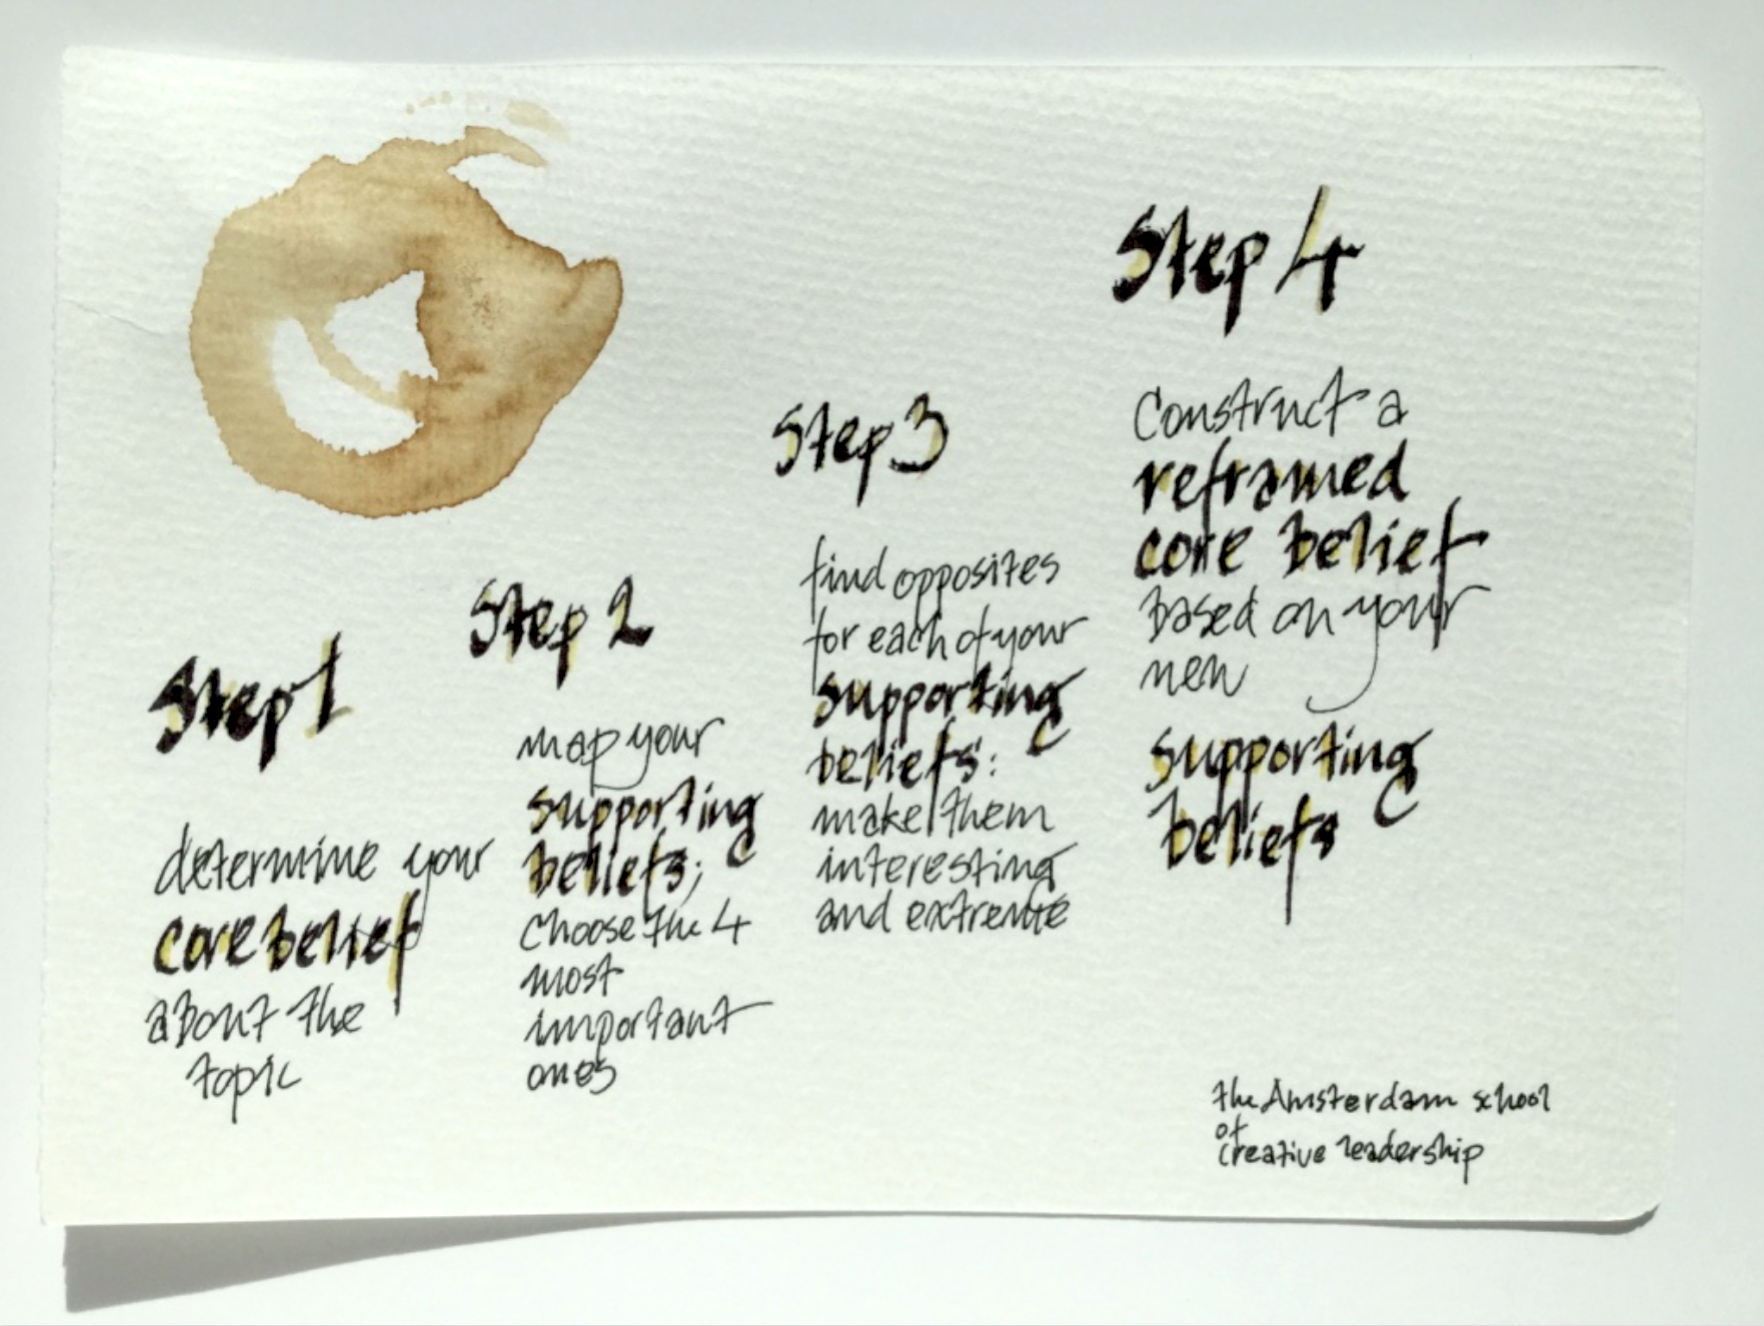 Step 1
determine your
core belief
about the
topic
Step 2
map your
supporting
beliefs;
choose the 4
most
important
ones
Step 3
find opposites
for each of your
supporting
beliefs:
make them
interesting
and extreme
Step 4
Construct a
reframed
core belief
based on your
new
supporting
beliefs
the Amsterdam school
of
creative leadership